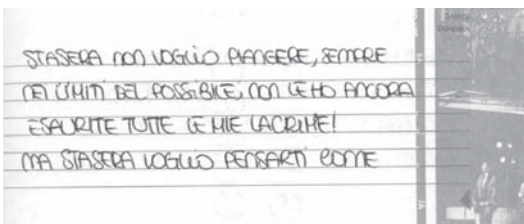 STASERA NON VOGLIO PIANGERE, SEMPRE
NEI LIMITI DEL POSSIBILE, NON LE HO ANCORA
ESAURITE TUTTE LE MIE LACRIME!
MA STASERA VOGLIO PENSARTI COME